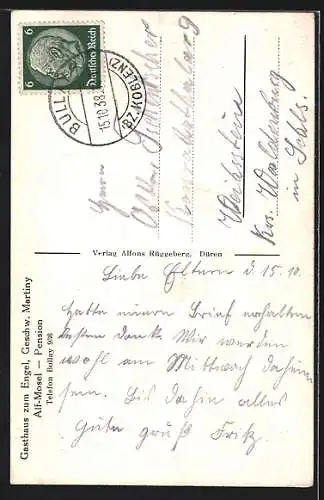 Deutsches Reich
6 6
BULL
15.10.38
BZ. KOBLENZ
Herrn
Konradsthalerg
Kr. Waldenburg
in Schls.
Verlag Alfons Rüggeberg, Düren
Gasthaus zum Engel, Geschw. Martiny
Alf-Mosel — Pension
Telefon Bullay
Liebe Eltern d. 15.10.
Hatte einen Brief erhalten
besten Dank. Wir werden
wohl am Mittwoch daheim
sein. Bis dahin alles
Gute gruß Fritz.